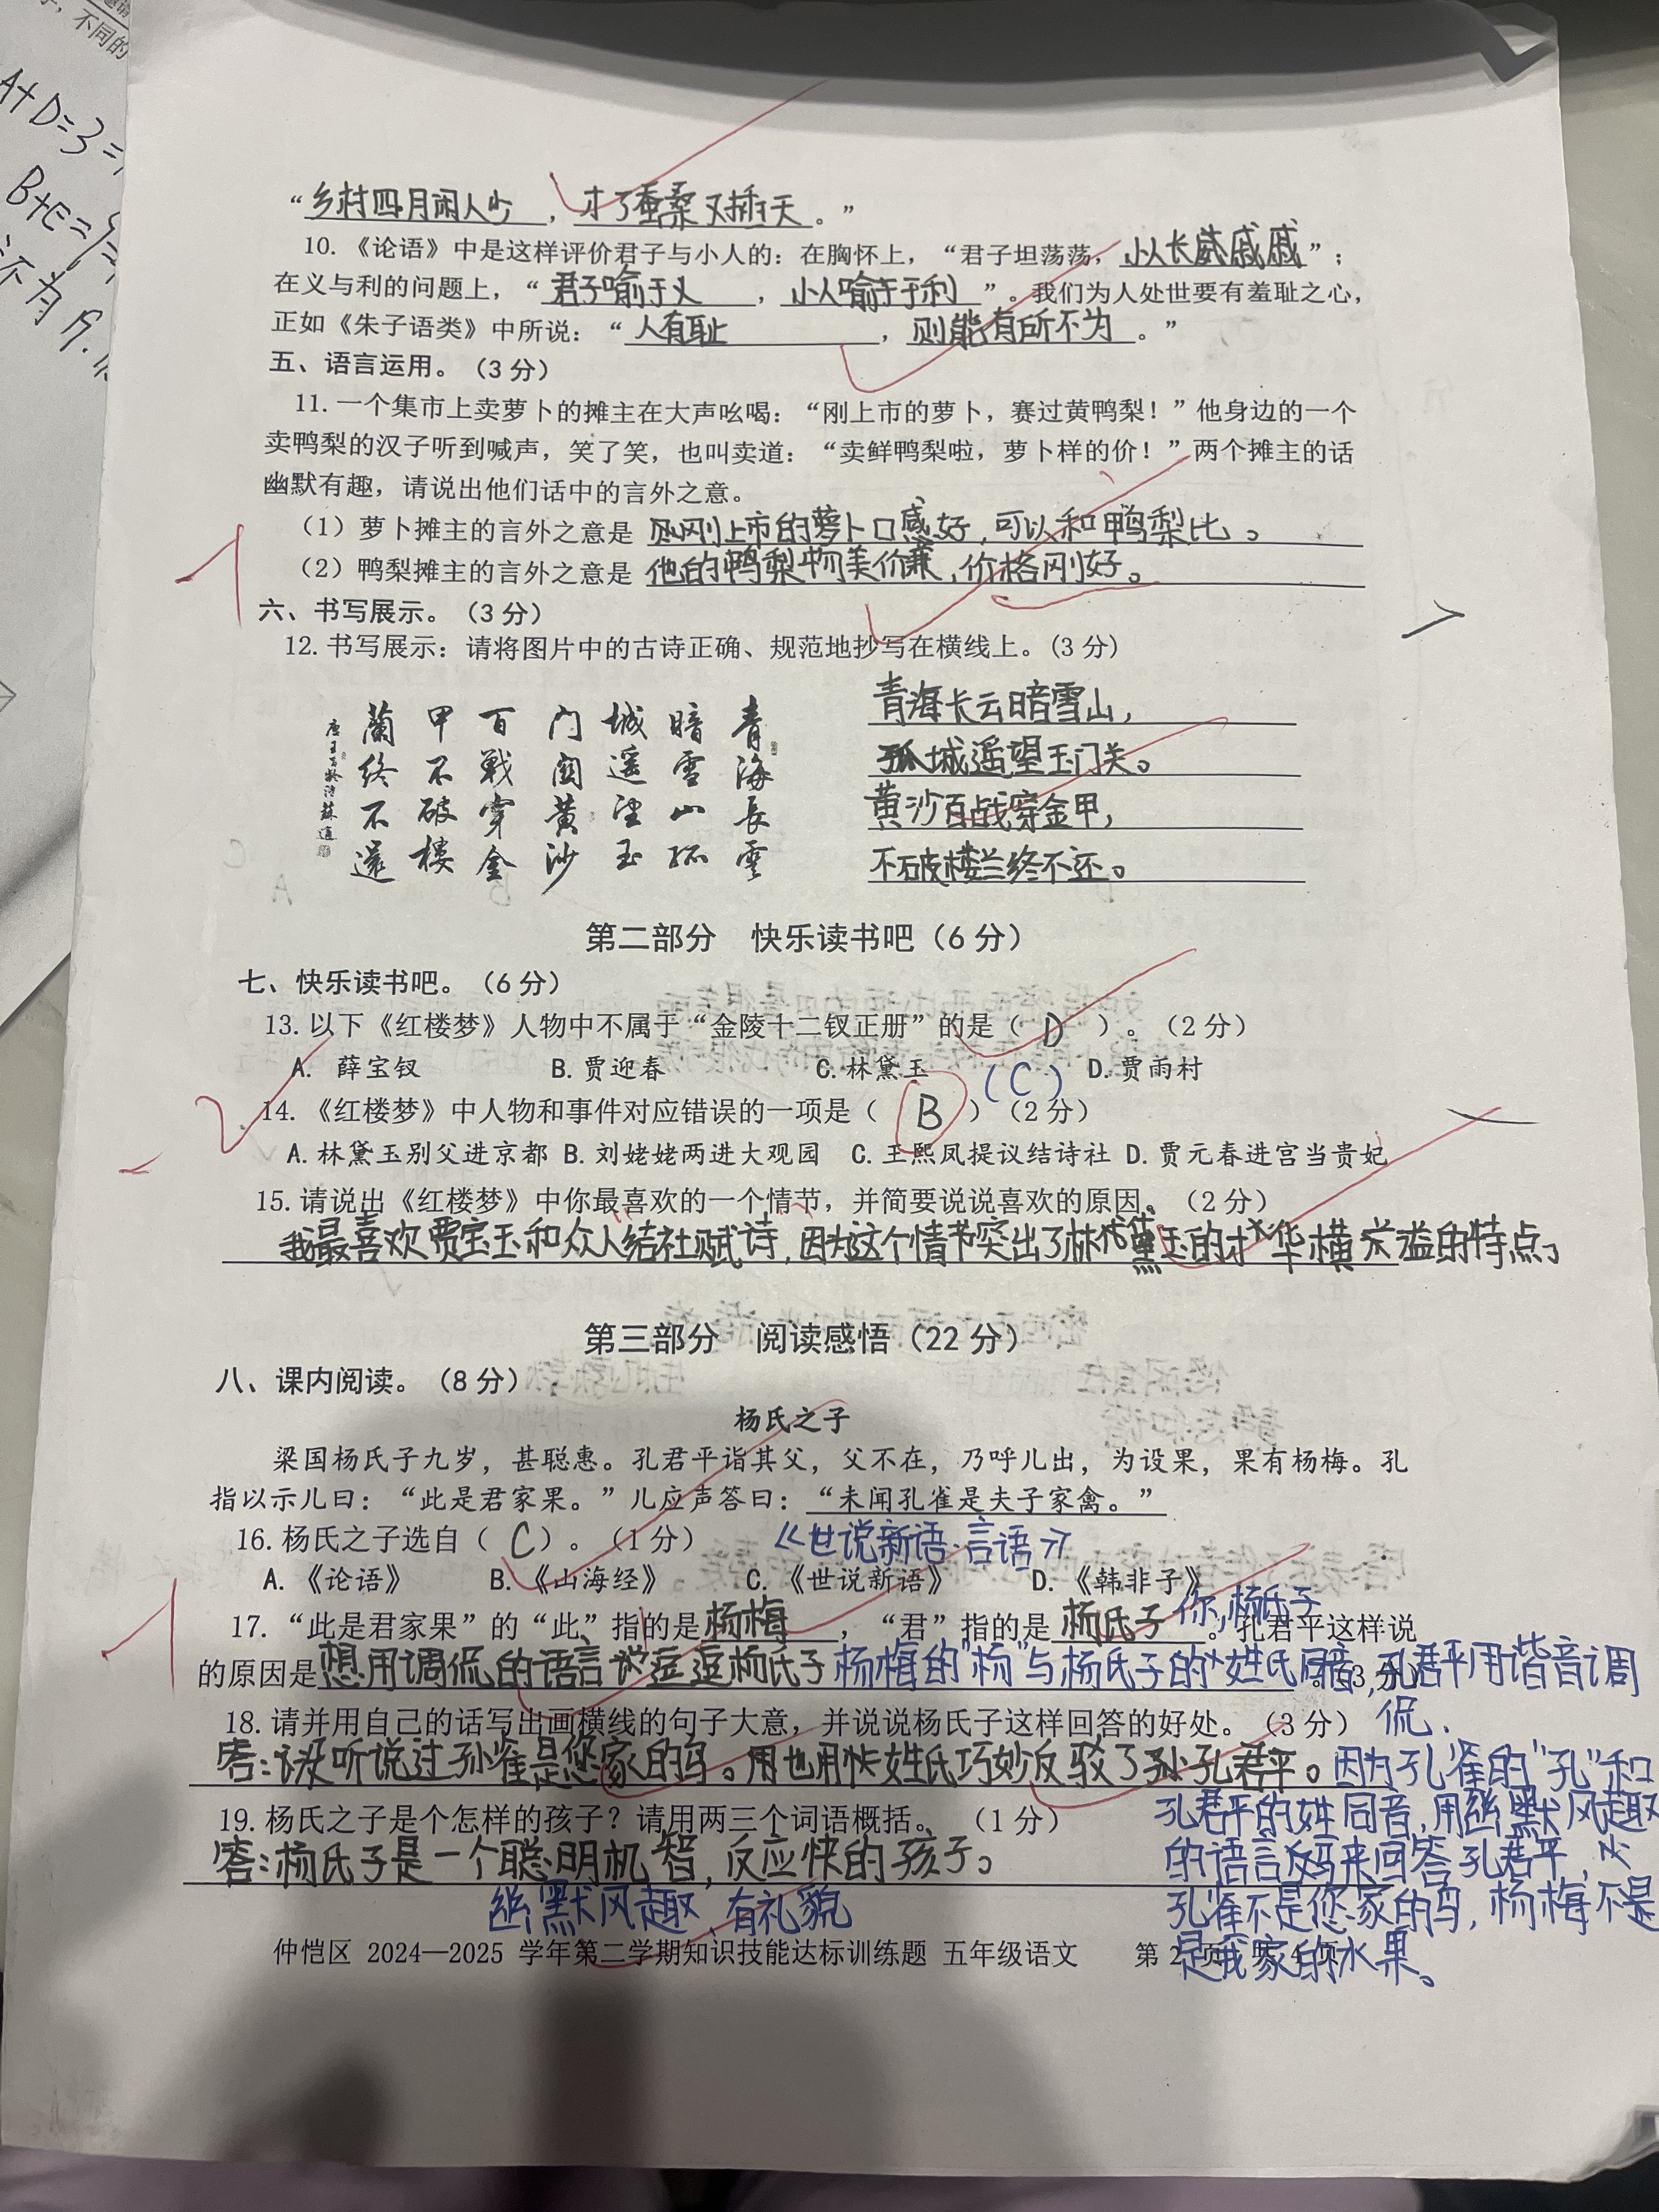 ，不同的
A+D=3=
B+E=9=
不为
“乡村四月闲人少，才了蚕桑又插天。”
10.《论语》中是这样评价君子与小人的：在胸怀上，“君子坦荡荡，小以长戚戚戚”；
在义与利的问题上，“君子喻于义，小人喻于于利”。我们为人处世要有羞耻之心，
正如《朱子语类》中所说：“人有耻，则能有所不为。”
五、语言运用。（3 分）
11.一个集市上卖萝卜的摊主在大声吆喝：“刚上市的萝卜，赛过黄鸭梨！”他身边的一个
卖鸭梨的汉子听到喊声，笑了笑，也叫卖道：“卖鲜鸭梨啦，萝卜样的价！”两个摊主的话
幽默有趣，请说出他们话中的言外之意。
（1）萝卜摊主的言外之意是 刚上市的萝卜口感好，可以和鸭梨比。
（2）鸭梨摊主的言外之意是 他的鸭梨物美价廉，价格刚好。
六、书写展示。（3 分）
12.书写展示：请将图片中的古诗正确、规范地抄写在横线上。(3 分)
青海長雲
暗雪山孤
城遥望玉
门関黄沙
百戰穿金
甲不破樓
蘭终不還
青海长云暗雪山，
孤城遥望玉门关。
黄沙百战穿金甲，
不破楼兰终不还。
第二部分 快乐读书吧（6 分）
七、快乐读书吧。（6 分）
13.以下《红楼梦》人物中不属于“金陵十二钗正册”的是（ D ）。（2 分）
A. 薛宝钗 B.贾迎春 C.林黛玉 D.贾雨村
(C)
14.《红楼梦》中人物和事件对应错误的一项是（ B ）（2 分）
A.林黛玉别父进京都 B.刘姥姥两进大观园 C.王熙凤提议结诗社 D.贾元春进宫当贵妃
15.请说出《红楼梦》中你最喜欢的一个情节，并简要说说喜欢的原因。（2 分）
我最喜欢贾宝玉和众人结社赋诗，因为这个情节突出了林黛玉的才华横溢的特点。
第三部分 阅读感悟（22 分）
八、课内阅读。（8 分）
杨氏之子
梁国杨氏子九岁，甚聪惠。孔君平诣其父，父不在，乃呼儿出，为设果，果有杨梅。孔
指以示儿曰：“此是君家果。”儿应声答曰：“未闻孔雀是夫子家禽。”
16.杨氏之子选自（ C ）。（1 分） 《世说新语·言语》
A.《论语》 B.《山海经》 C.《世说新语》 D.《韩非子》
你，杨氏子
17.“此是君家果”的“此”指的是杨梅，“君”指的是杨氏子。孔君平这样说
的原因是想用调侃的语言逗逗杨氏子 杨梅的“杨”与杨氏子的姓氏同音，孔君平用谐音调
侃.
18.请并用自己的话写出画横线的句子大意，并说说杨氏子这样回答的好处。（3 分）
答：没听说过孔雀是您家的鸟。他用姓氏巧妙反驳了孔君平。因为孔雀的“孔”和
孔君平的姓同音，用幽默风趣
的语言来回答孔君平，
孔雀不是您家的鸟，杨梅不是
是我家的水果。
19.杨氏之子是个怎样的孩子？请用两三个词语概括。（1 分）
答：杨氏子是一个聪明机智，反应快的孩子。
幽默风趣、有礼貌
仲恺区 2024—2025 学年第二学期知识技能达标训练题 五年级语文 第 2 页 共 4 页